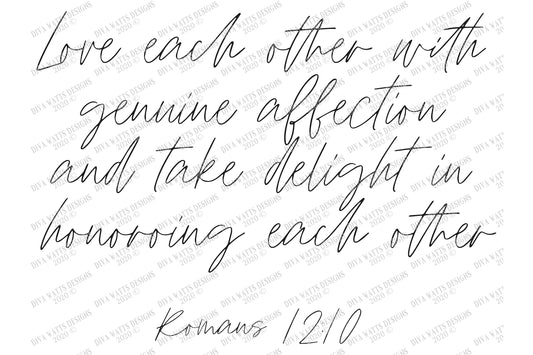 Love each other with
genuine affection
and take delight in
honoroing each other
Romans 12:10
DIVA WATTS DESIGNS
2020 ©